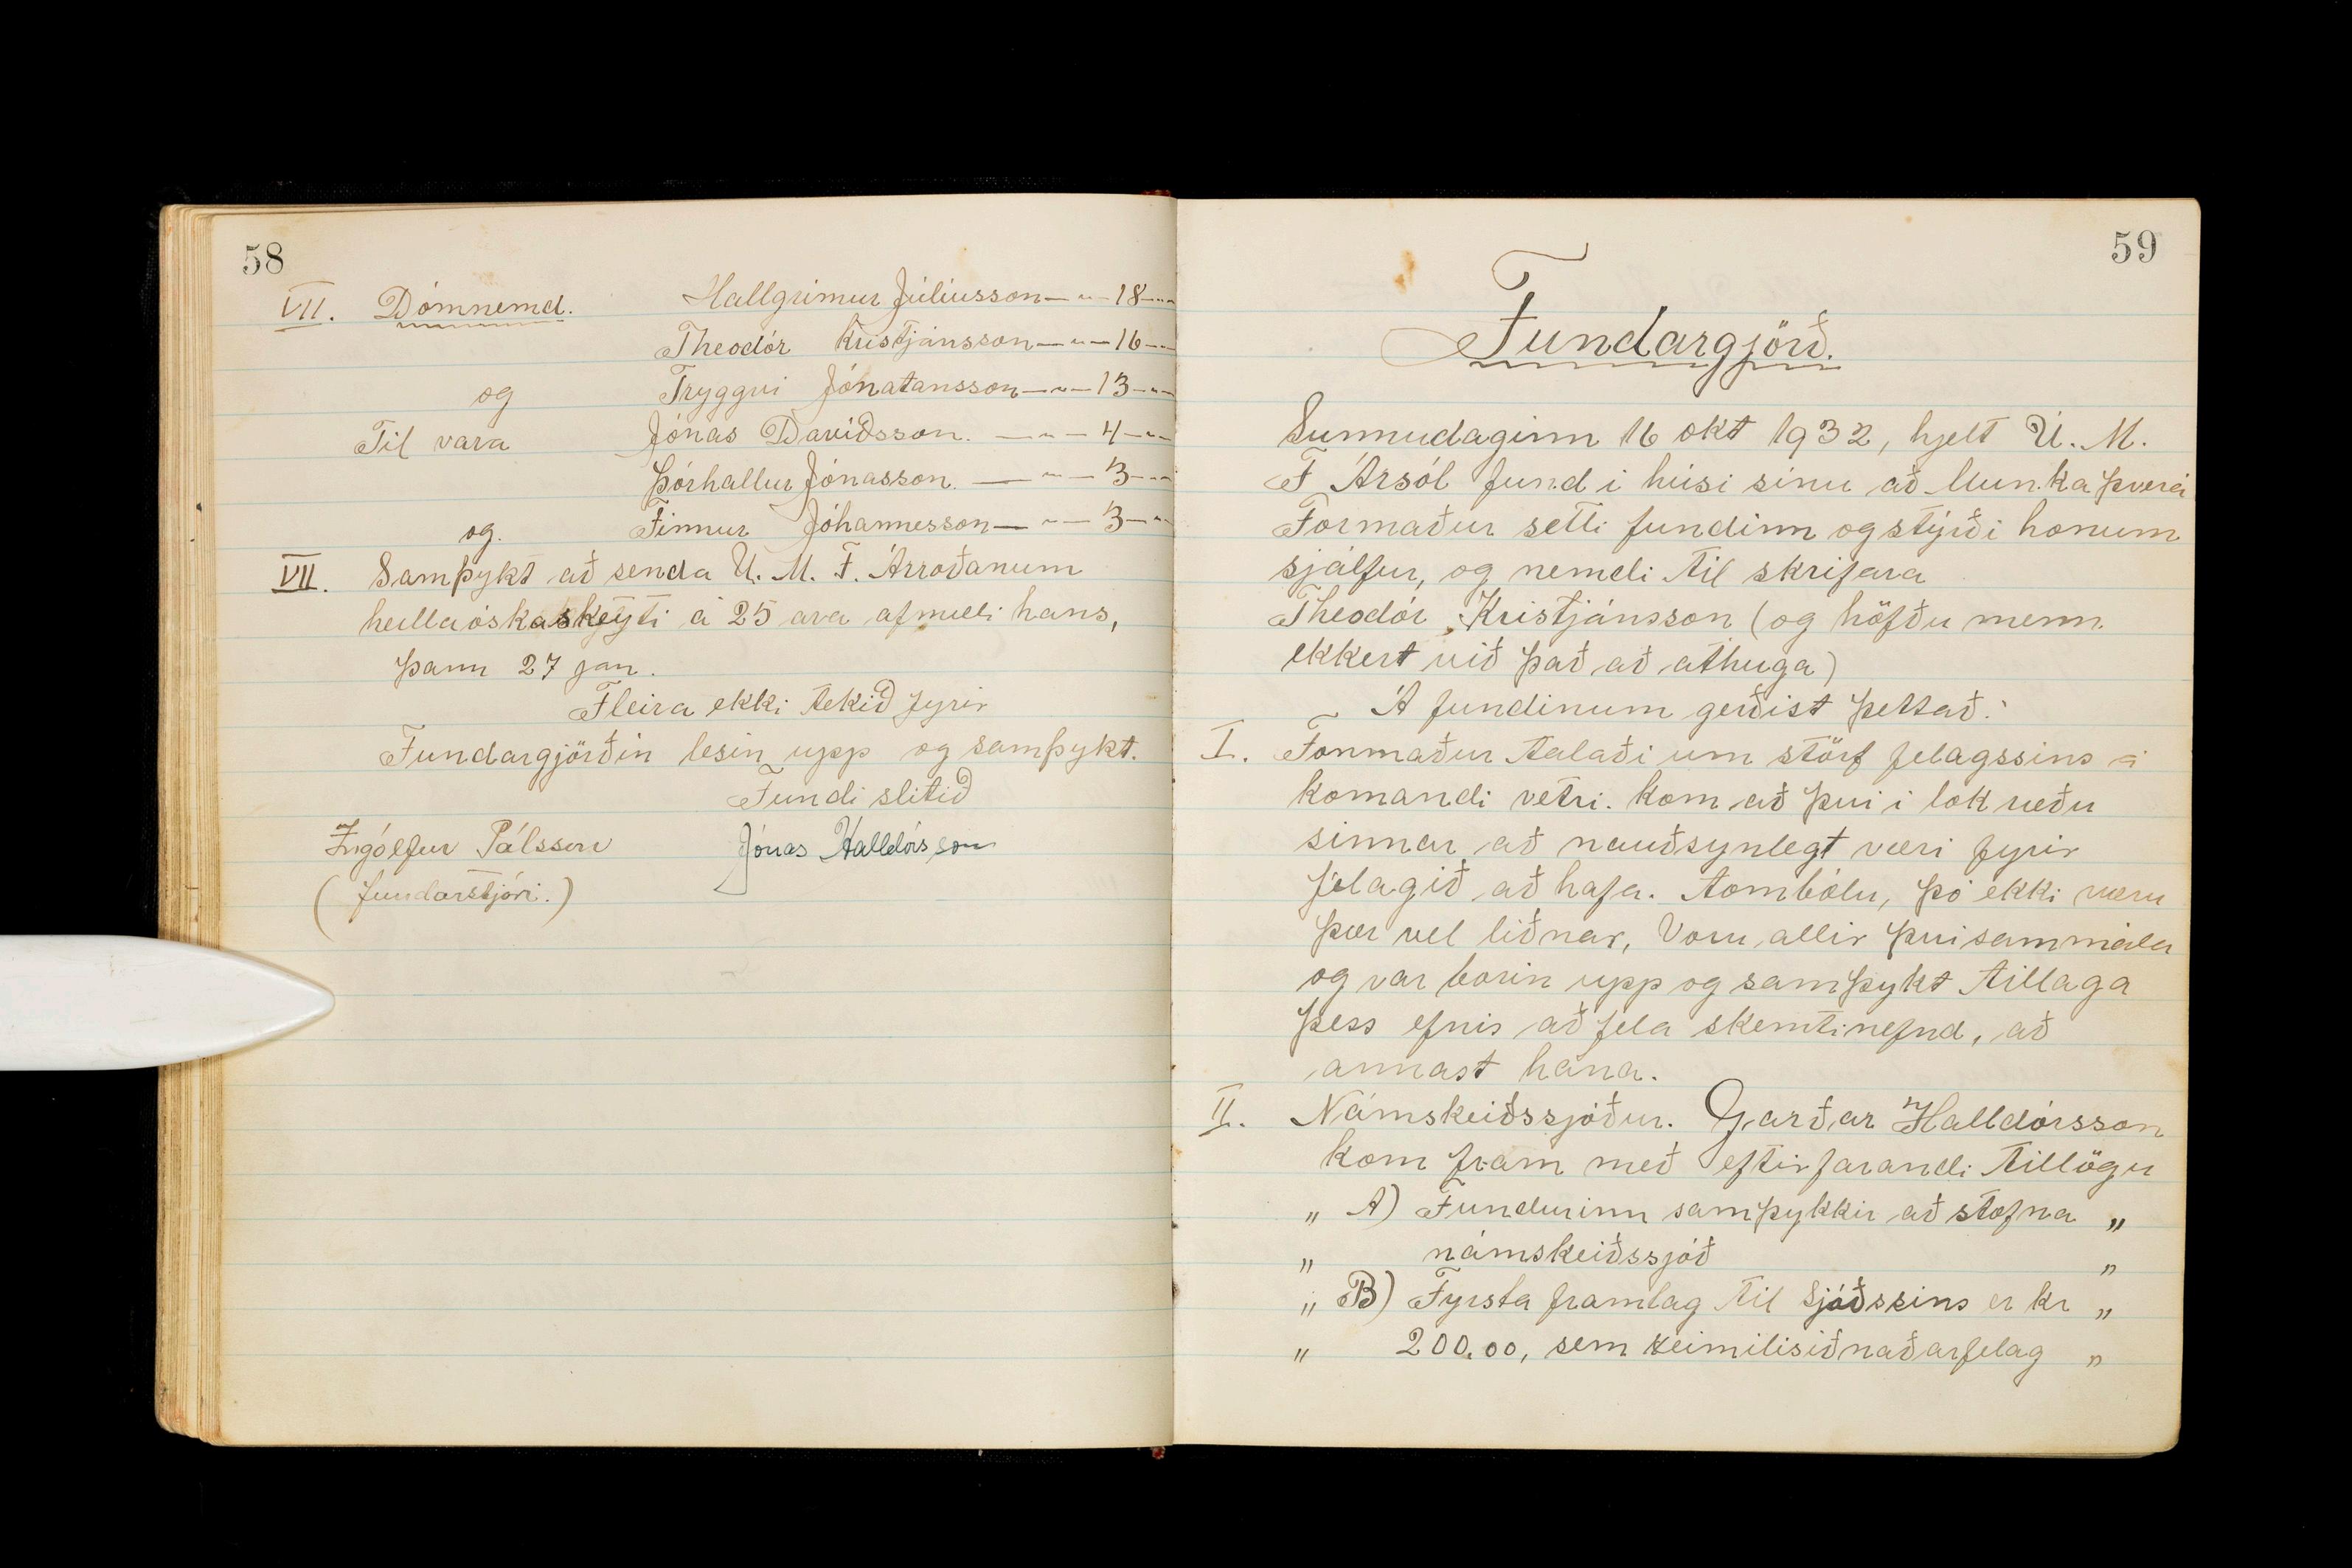 58
VII. Dómnemd. Hallgrimur Júlíusson — „ — 18 — „ —
Theodór Kristjánsson — „ — 16 — „ —
og Tryggvi Jónatansson — „ — 13 — „ —
Til vara Jónas Davíðsson. — „ — 4 — „ —
Þórhallur Jónasson. — „ — 3 — „ —
og. Finnur Jóhannesson — „ — 3 — „ —
VII. Samþykt að senda U. M. F. Árroðanum
heillaóskaskeyti á 25 ara afmæli hans,
þann 27 jan.
Fleira ekki tekið fyrir
Fundargjörðin lesin upp og samþykt.
Fundi slitið
Ingólfur Pálsson Jónas Halldórsson
(fundarstjóri.)
59
Fundargjörð.
Sunnudaginn 16 okt 1932, hjelt U. M.
F Ársól fund i húsi sinu að Munkaþverá
Formaður setti fundinn og stýrði honum
sjálfur, og nemdi til skrifara
Theodór Kristjánsson (og höfðu menn
ekkert við það að athuga)
Á fundinum gerðist þettað:
I. Formaður talaði um störf felagssins á
komandi vetri. kom að þvi i lok ræðu
sinnar að nauðsynlegt væri fyrir
félagið að hafa. tombólu, þó ekki væru
þær vel liðnar, Voru allir þvi sammála
og var borin upp og samþykt tillaga
þess efnis að fela skemtinefnd, að
annast hana.
II. Námskeiðssjóður. Garðar Halldórsson
kom fram með eftirfarandi tillögu
„ A) Fundurinn samþykkir að stofna „
„ námskeiðssjóð „
„ B) Fyrsta framlag til sjóðssins er kr „
„ 200.00, sem heimilisiðnaðarfelag „